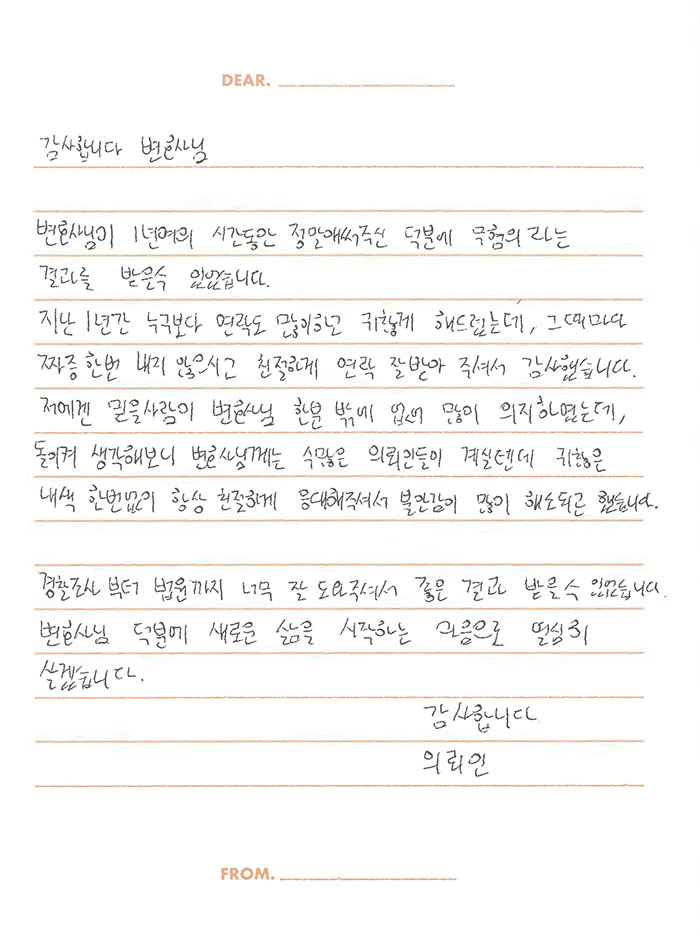 DEAR.
감사합니다 변호사님
변호사님이 1년여의 시간동안 정말애써주신 덕분에 무혐의 라는
결과를 받을수 있었습니다.
지난 1년간 누구보다 연락도 많이하고 귀찮게 해드렸는데, 그때마다
짜증한번 내지 않으시고 친절하게 연락 잘받아 주셔서 감사했습니다.
저에겐 믿을사람이 변호사님 한분 밖에 없어 많이 의지하였는데,
돌이켜 생각해보니 변호사님께는 수많은 의뢰인들이 계실텐데 귀찮은
내색 한번없이 항상 친절하게 응대해주셔서 불안감이 많이 해소되곤 했습니다.
경찰조사 부터 법원까지 너무 잘 도와주셔서 좋은 결과 받을수 있었습니다.
변호사님 덕분에 새로운 삶을 시작하는 마음으로 열심히
살겠습니다.
감사합니다
의뢰인
FROM.